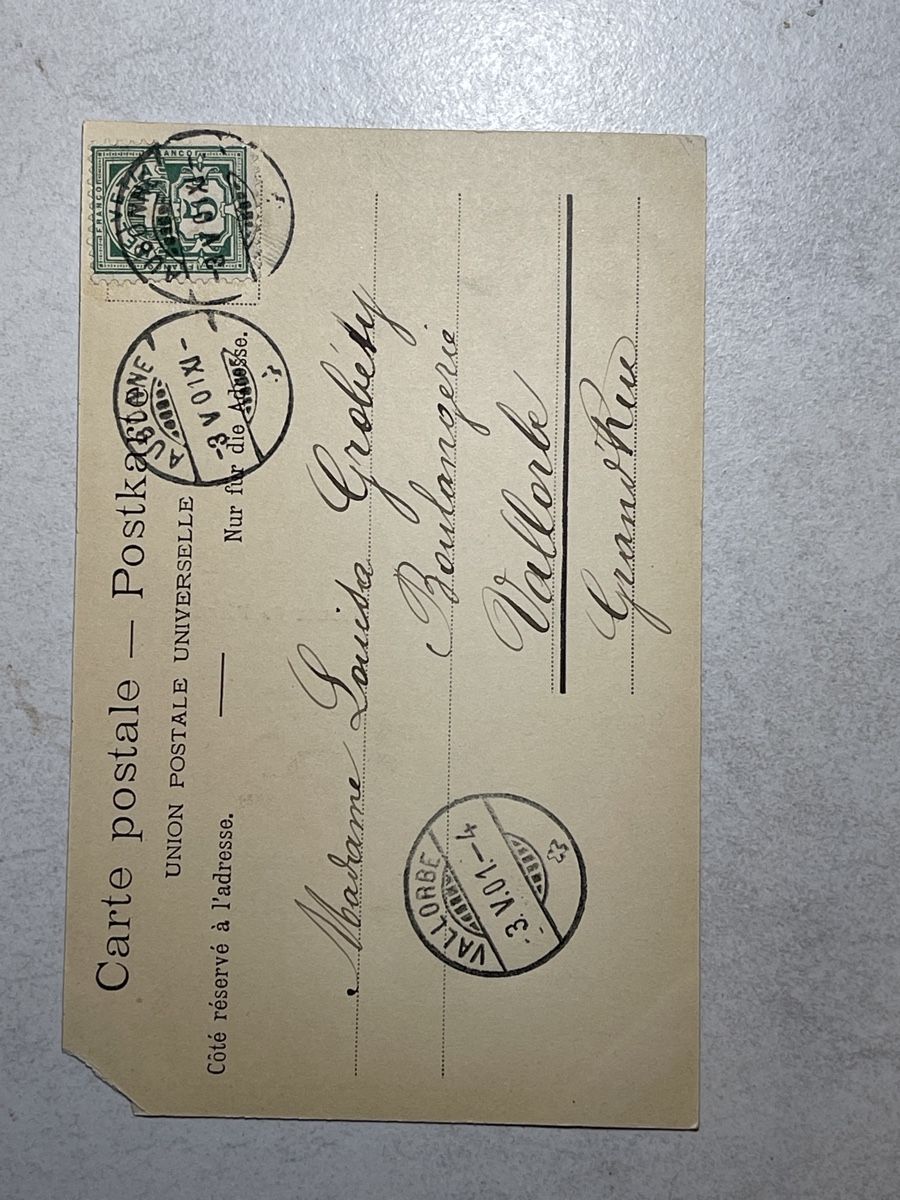 Carte postale — Postkarte
UNION POSTALE UNIVERSELLE
Côté réservé à l'adresse. — Nur für die Adresse.
FRANCO
HELVETIA
5
AUBONNE
-3 V 01 XI -
AUBONNE
-3 V 01 XI -
Madame Louisa Grobéty
Boulangerie
Vallorbe
Grand'Rue
VALLORBE
-3.V.01.-4